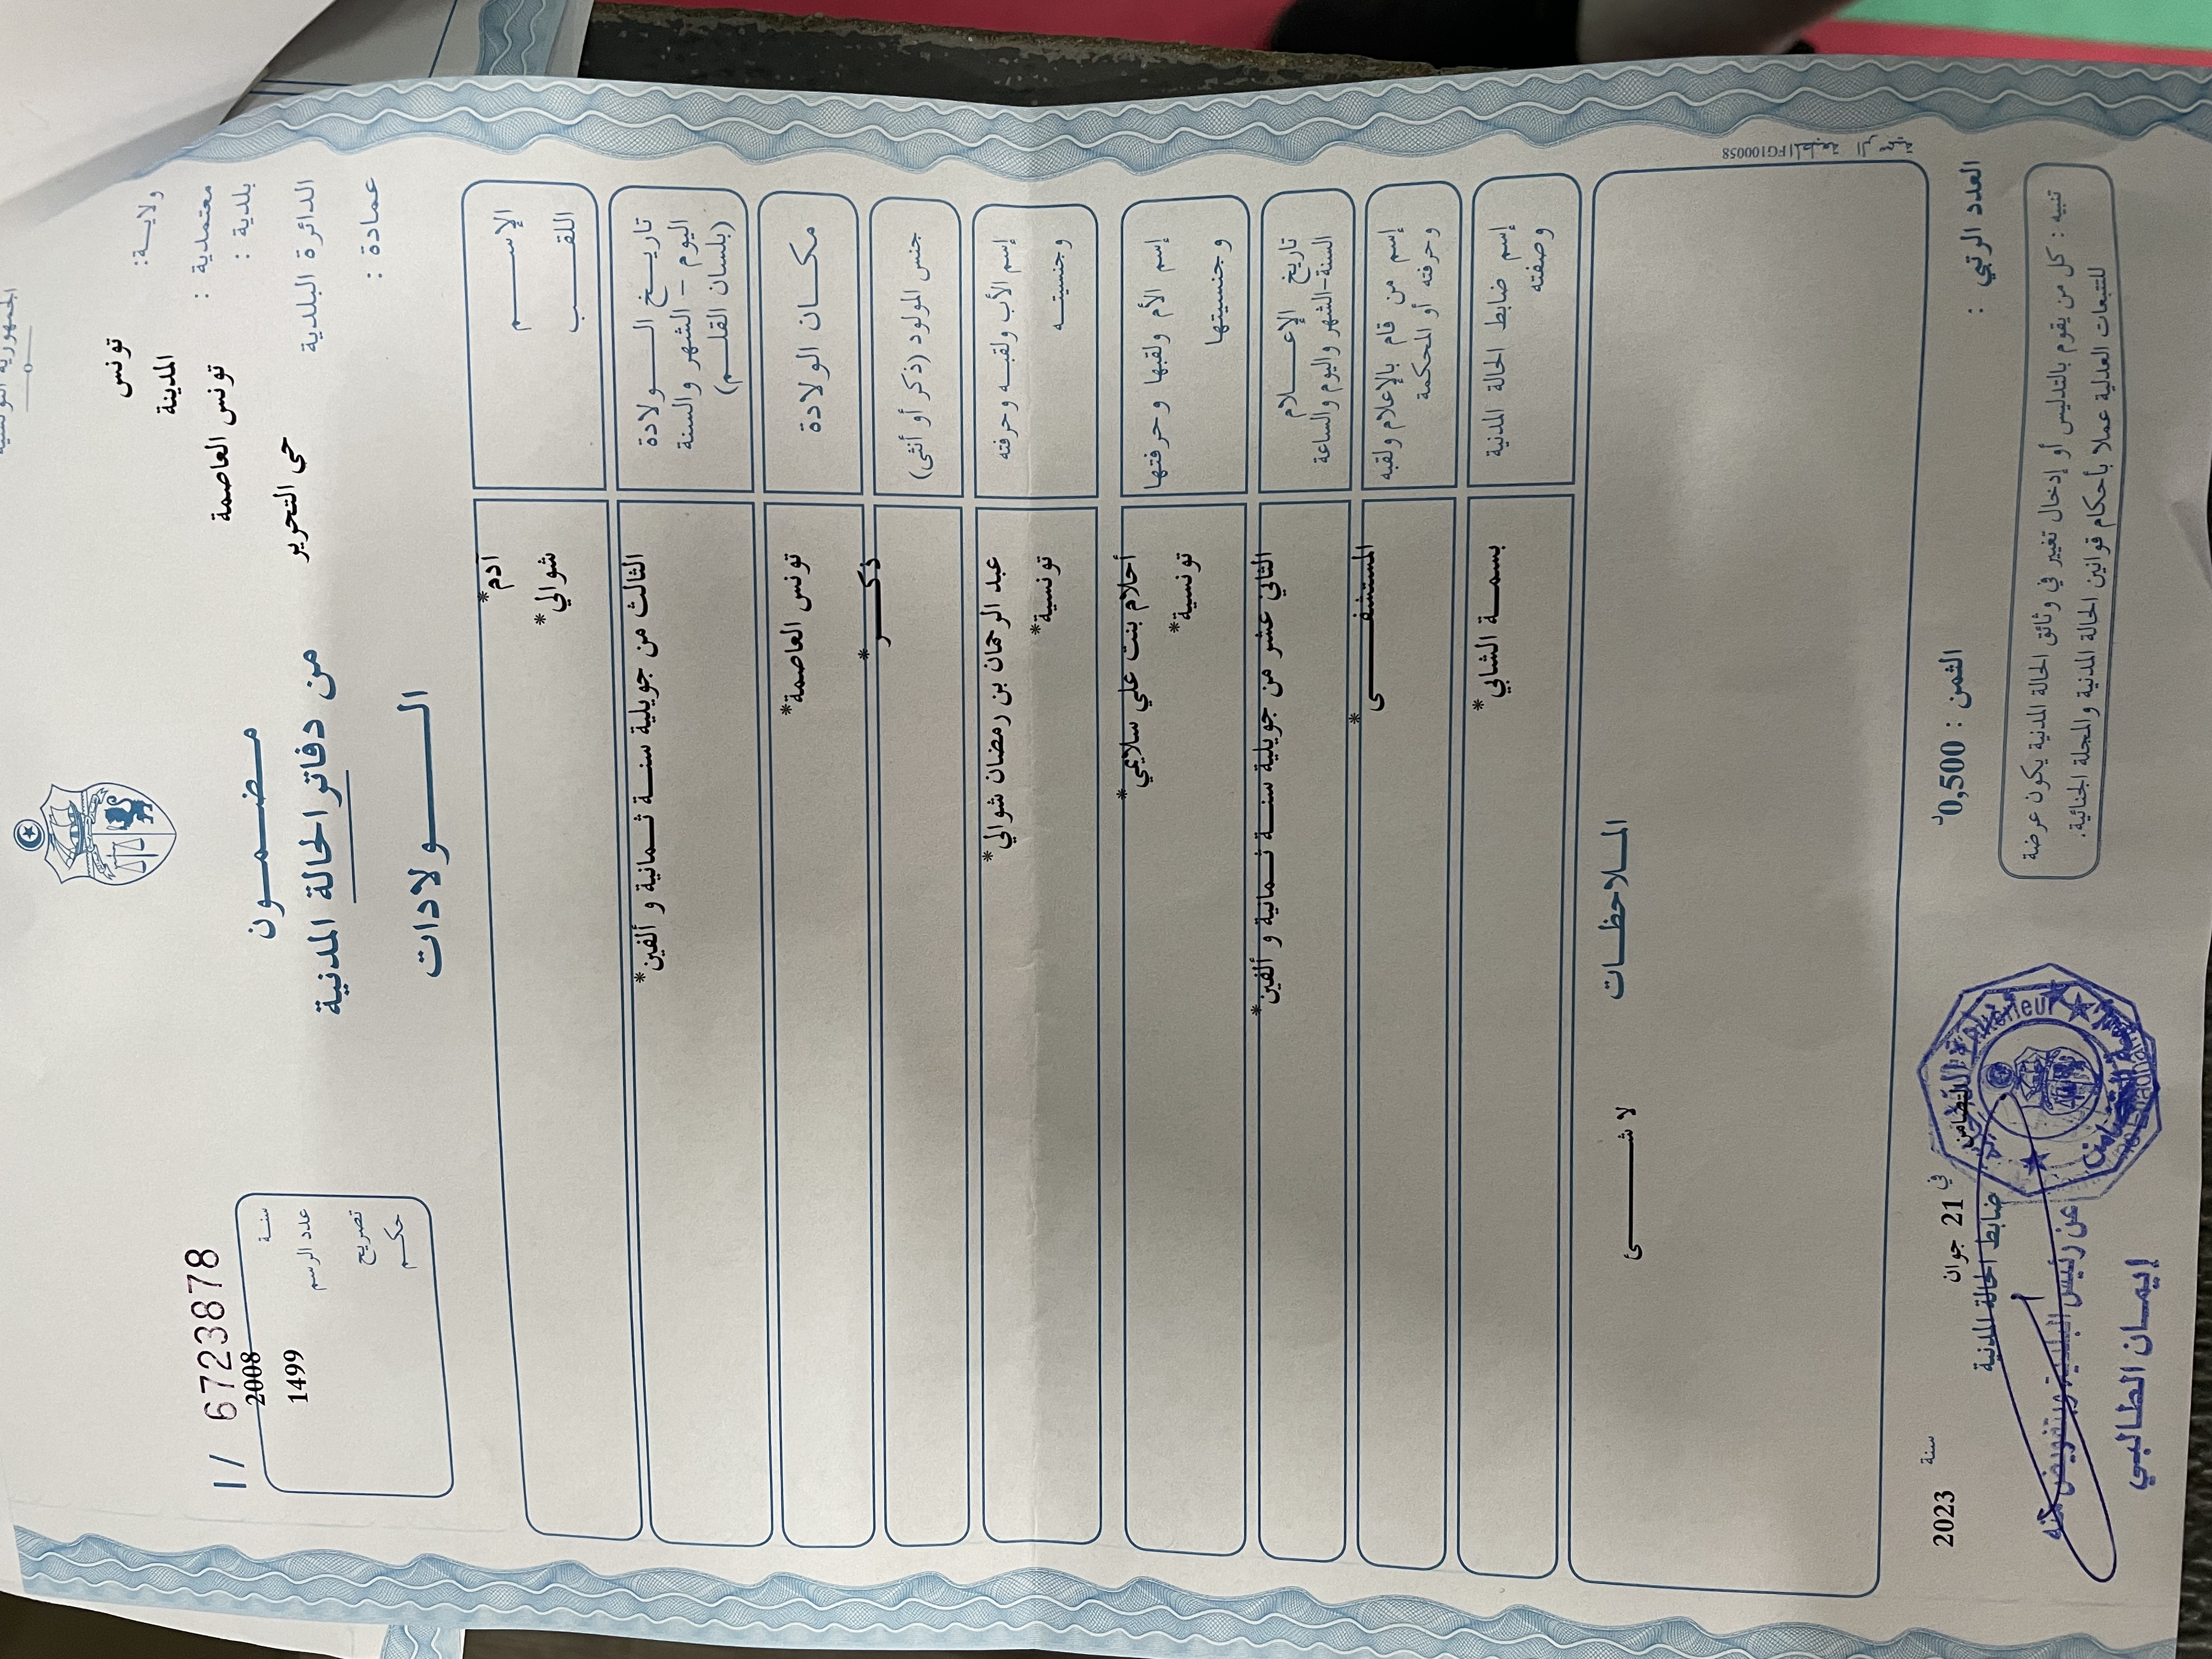 الجمهورية التونسية
ولايــة: تونس
معتمدية : المدينة
بلدية : تونس العاصمة
الدائرة البلدية حي التحرير
عمادة :
مـضـمـون
من دفاتر الحالة المدنية
الـــولادات
1/ 6723878
سنـة 2008
عدد الرسم 1499
تصريح
حكـم
الإســـم
اللقـــب
آدم*
شوالي*
تاريـــخ الـــولادة
اليوم - الشهر والسنة
(بلسان القلــم)
الثالث من جويلية سنـــة ثــمانية و ألفين*
مكــان الولادة
تونس العاصمة*
جنس المولود (ذكر أو أنثى)
ذكـــر*
إسم الأب ولقبـه وحرفته
وجنسيتــه
عبد الرحمان بن رمضان شوالي*
تونسية*
إسم الأم ولقبها وحرفتها
وجنسيتها
أحلام بنت علي سلايمي*
تونسية*
تاريخ الإعــــلام
السنة-الشهر واليوم والساعة
الثاني عشر من جويلية سنـــة ثــمانية و ألفين*
إسم من قام بالإعلام ولقبه
وحرفته أو المحكمة
المستشفـــى*
إسم ضابط الحالة المدنية
وصفته
بسمــة الشابي*
المـلاحظـات
لا شـــــئ
FG100058 المطبعة الرسمية
العدد الرتبي :
الثمن : 0,500د
في 21 جوان سنة 2023
ضابط الحالة المدنية
عن رئيس البلدية وبتفويض منه
إيمـان الطـالبـي
تنبيه : كل من يقوم بالتدليس أو إدخال تغيير في وثائق الحالة المدنية يكون عرضة
للتتبعات العدلية عملا بأحكام قوانين الحالة المدنية والمجلة الجنائية.